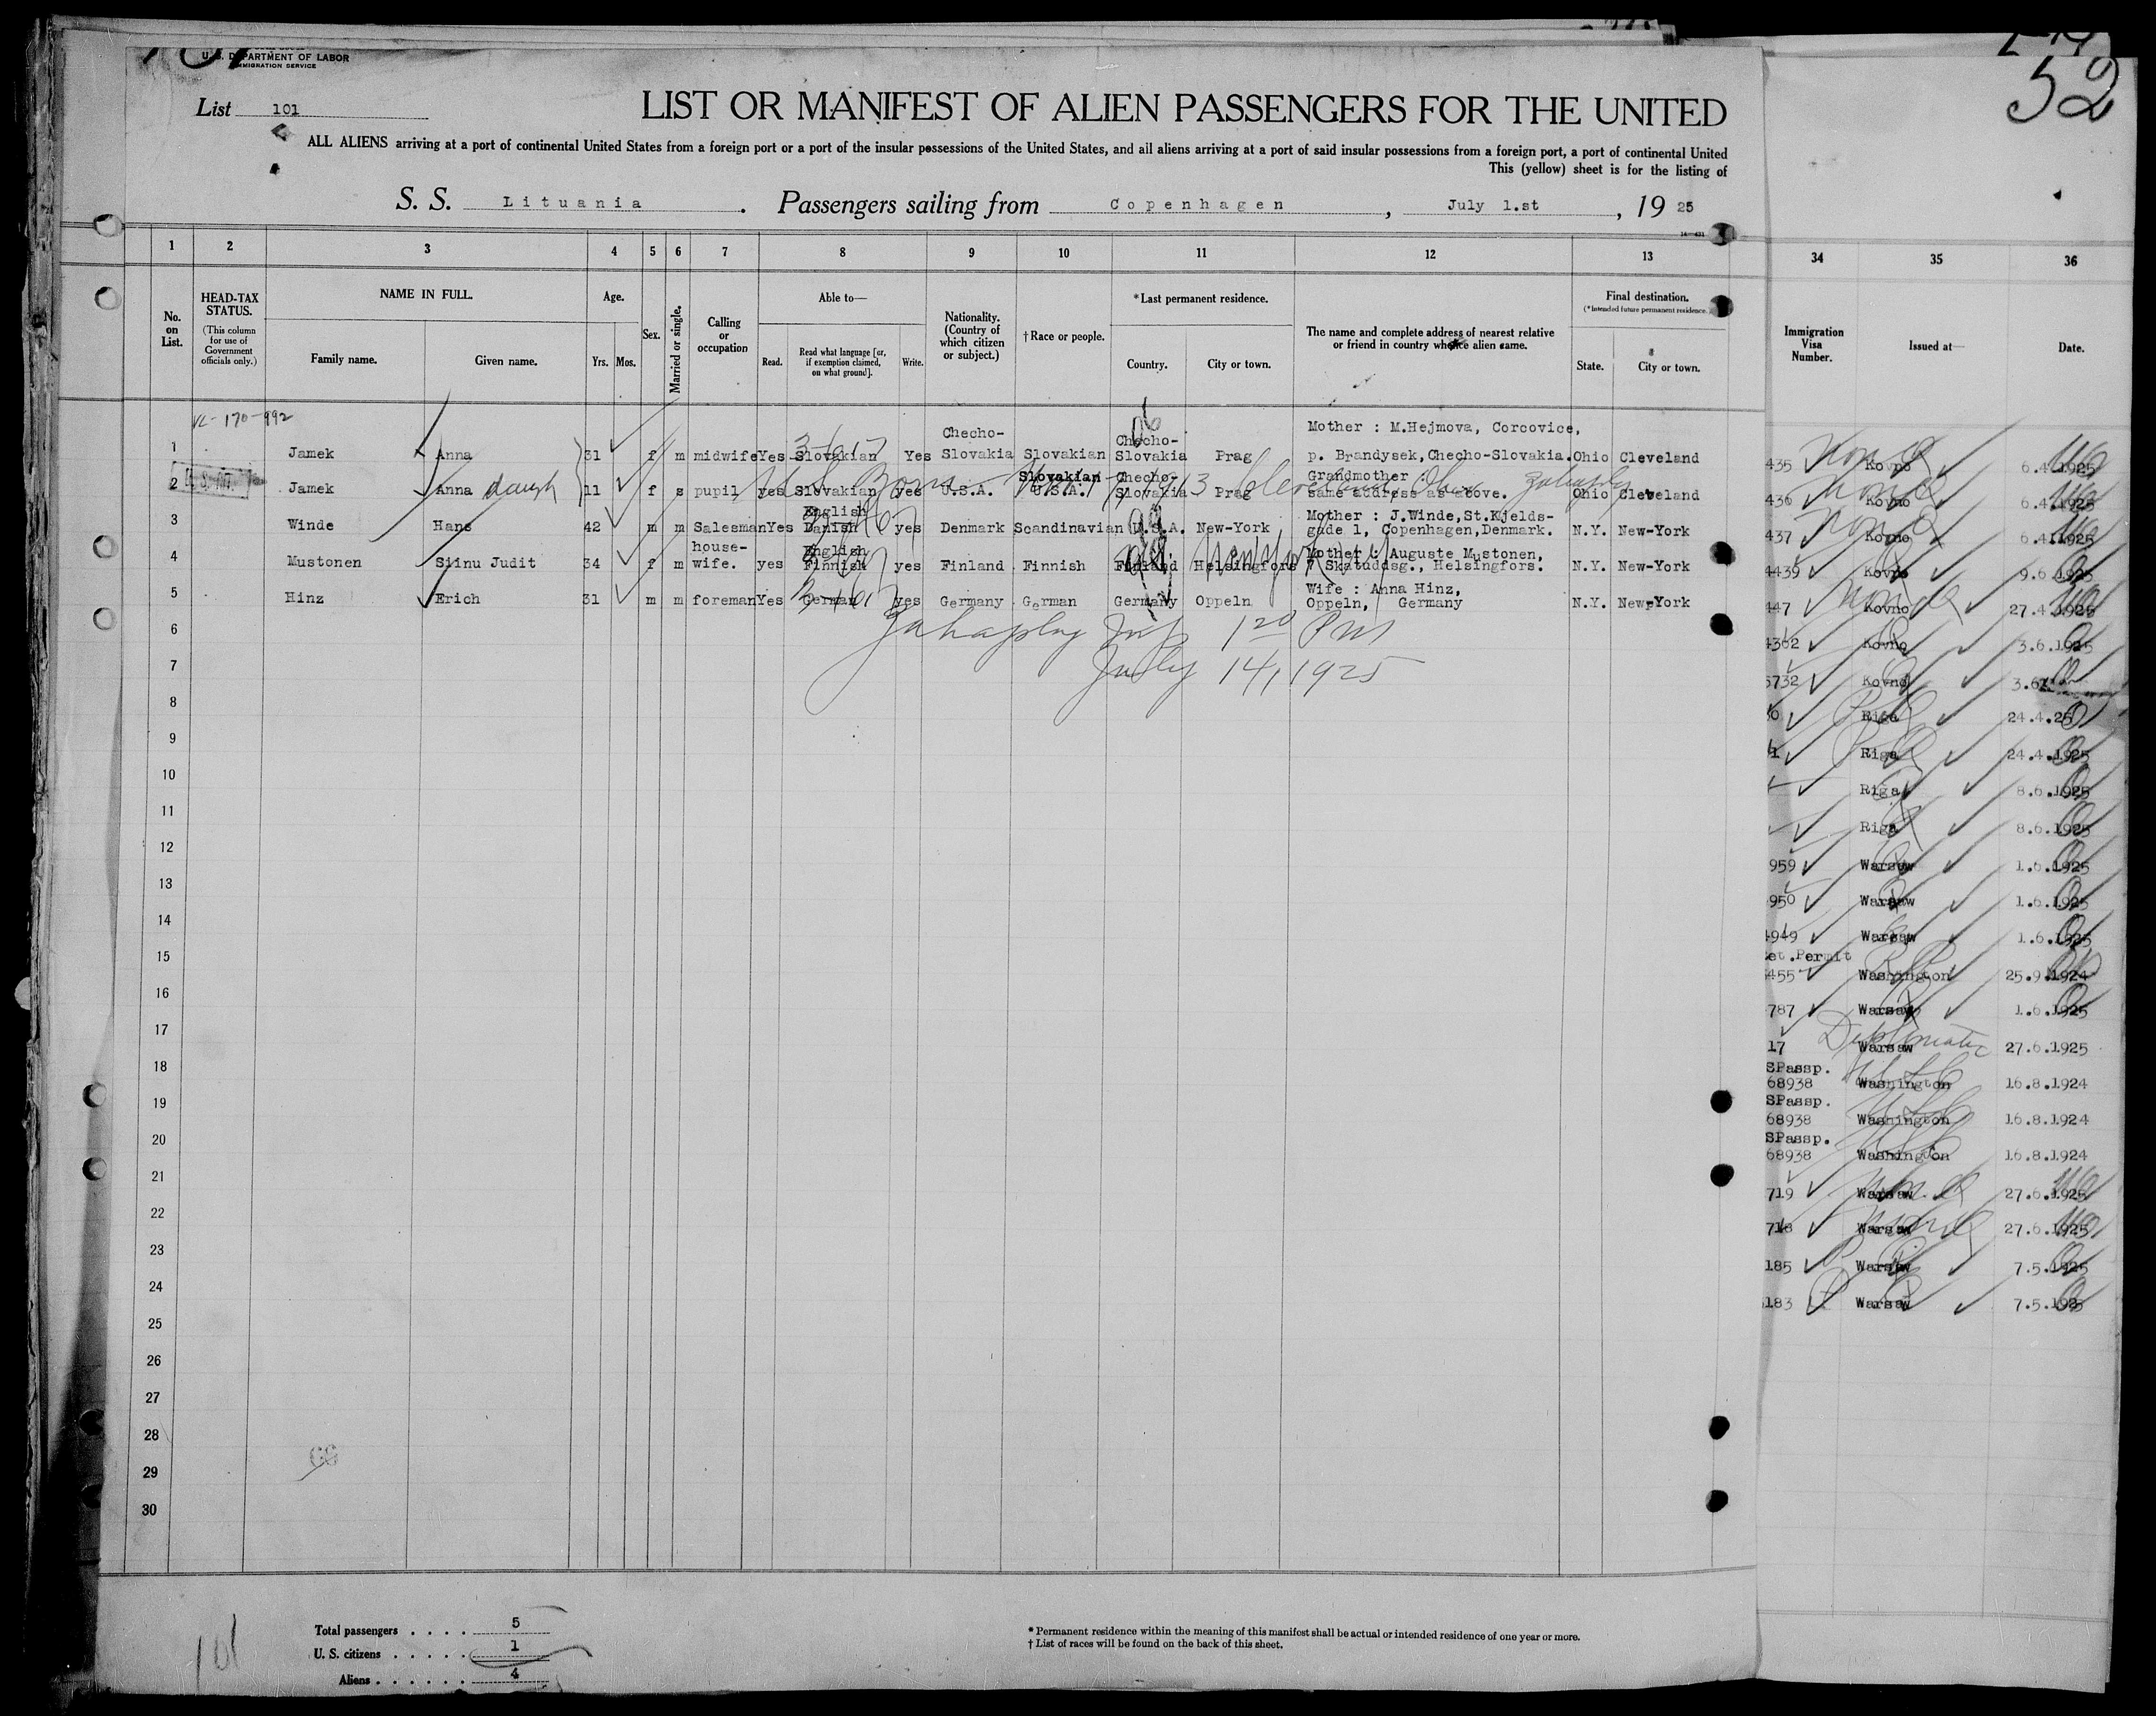 U. S. DEPARTMENT OF LABOR
IMMIGRATION SERVICE
52
List 101
LIST OR MANIFEST OF ALIEN PASSENGERS FOR THE UNITED
ALL ALIENS arriving at a port of continental United States from a foreign port or a port of the insular possessions of the United States, and all aliens arriving at a port of said insular possessions from a foreign port, a port of continental United
This (yellow) sheet is for the listing of
S. S. Lituania. Passengers sailing from Copenhagen, July 1.st, 1925
1 2 3 4 5 6 7 8 9 10 11 12 13 34 35 36
No. on List.
HEAD-TAX STATUS.
(This column for use of Government officials only.)
NAME IN FULL.
Family name. Given name.
Age.
Yrs. Mos.
Sex.
Married or single.
Calling or occupation
Able to—
Read. Read what language [or, if exemption claimed, on what ground]. Write.
Nationality. (Country of which citizen or subject.)
† Race or people.
* Last permanent residence.
Country. City or town.
The name and complete address of nearest relative or friend in country whence alien came.
Final destination.
(* Intended future permanent residence.)
State. City or town.
Immigration Visa Number.
Issued at—
Date.
170-992
1 Jamek Anna 31 f m midwife Yes Slovakian Yes Checho-Slovakia Slovakian Checho-Slovakia Prag Mother : M.Hejmova, Corcovice, p. Brandysek,Checho-Slovakia. Ohio Cleveland
2 Jamek Anna daugh 11 f s pupil yes Slovakian yes U.S.A. Slovakian U.S.A. Checho-Slovakia Prag Grandmother : same address as above. Ohio Cleveland
U.S. Born 13 Cleveland, Ohio
3 Winde Hans 42 m m Salesman Yes English Danish yes Denmark Scandinavian U.S.A. New-York Mother : J.Winde,St.Kjelds-gade 1, Copenhagen,Denmark. N.Y. New-York
4 Mustonen Siinu Judit 34 f m house-wife. yes English Finnish yes Finland Finnish Finland Helsingfors New York Mother : Auguste Mustonen, 7 Skatuddsg., Helsingfors. N.Y. New-York
5 Hinz Erich 31 m m foreman Yes German yes Germany German Germany Oppeln Wife : Anna Hinz, Oppeln, Germany N.Y. New-York
6 Insp 1 20 PM
7 July 14, 1925
8
9
10
11
12
13
14
15
16
17
18
19
20
21
22
23
24
25
26
27
28
29
30
435 Kovno 6.4.1925
436 Kovno 6.4.1925
437 Kovno 6.4.1925
4439 Kovno 9.6.1925
447 Kovno 27.4.1925
4362 Kovno 3.6.1925
5732 Kovno
Riga 24.4.25
Riga 24.4.1925
Riga 8.6.1925
Riga 8.6.1925
959 Warsaw 1.6.1925
950 Warsaw 1.6.1925
4949 Warsaw 1.6.1925
et.Permit
455 Washington 25.9.1924
787 Warsaw 1.6.1925
Diplomatic
17 Warsaw 27.6.1925
SPassp.
68938 Washington 16.8.1924
SPassp.
68938 Washington 16.8.1924
SPassp.
68938 Washington 16.8.1924
719 Warsaw 27.6.1925
718 Warsaw 27.6.1925
185 Warsaw 7.5.1925
183 Warsaw 7.5.1925
101
Total passengers . . . . 5
U. S. citizens . . . . . 1
Aliens . . . . . . 4
* Permanent residence within the meaning of this manifest shall be actual or intended residence of one year or more.
† List of races will be found on the back of this sheet.